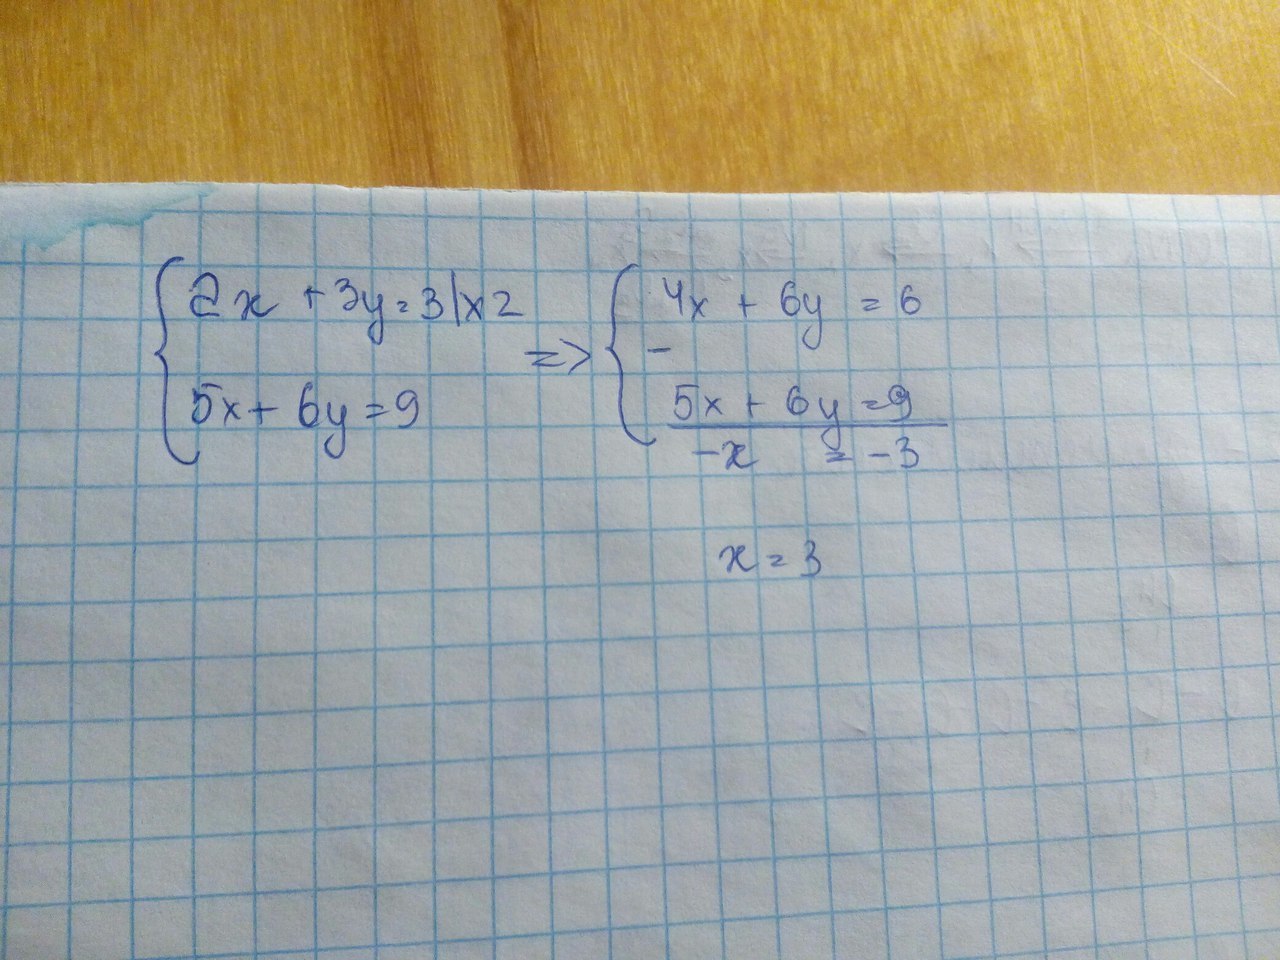 2x + 3y = 3 | x 2
5x + 6y = 9
=>
4x + 6y = 6
-
5x + 6y = 9
-x = -3
x = 3